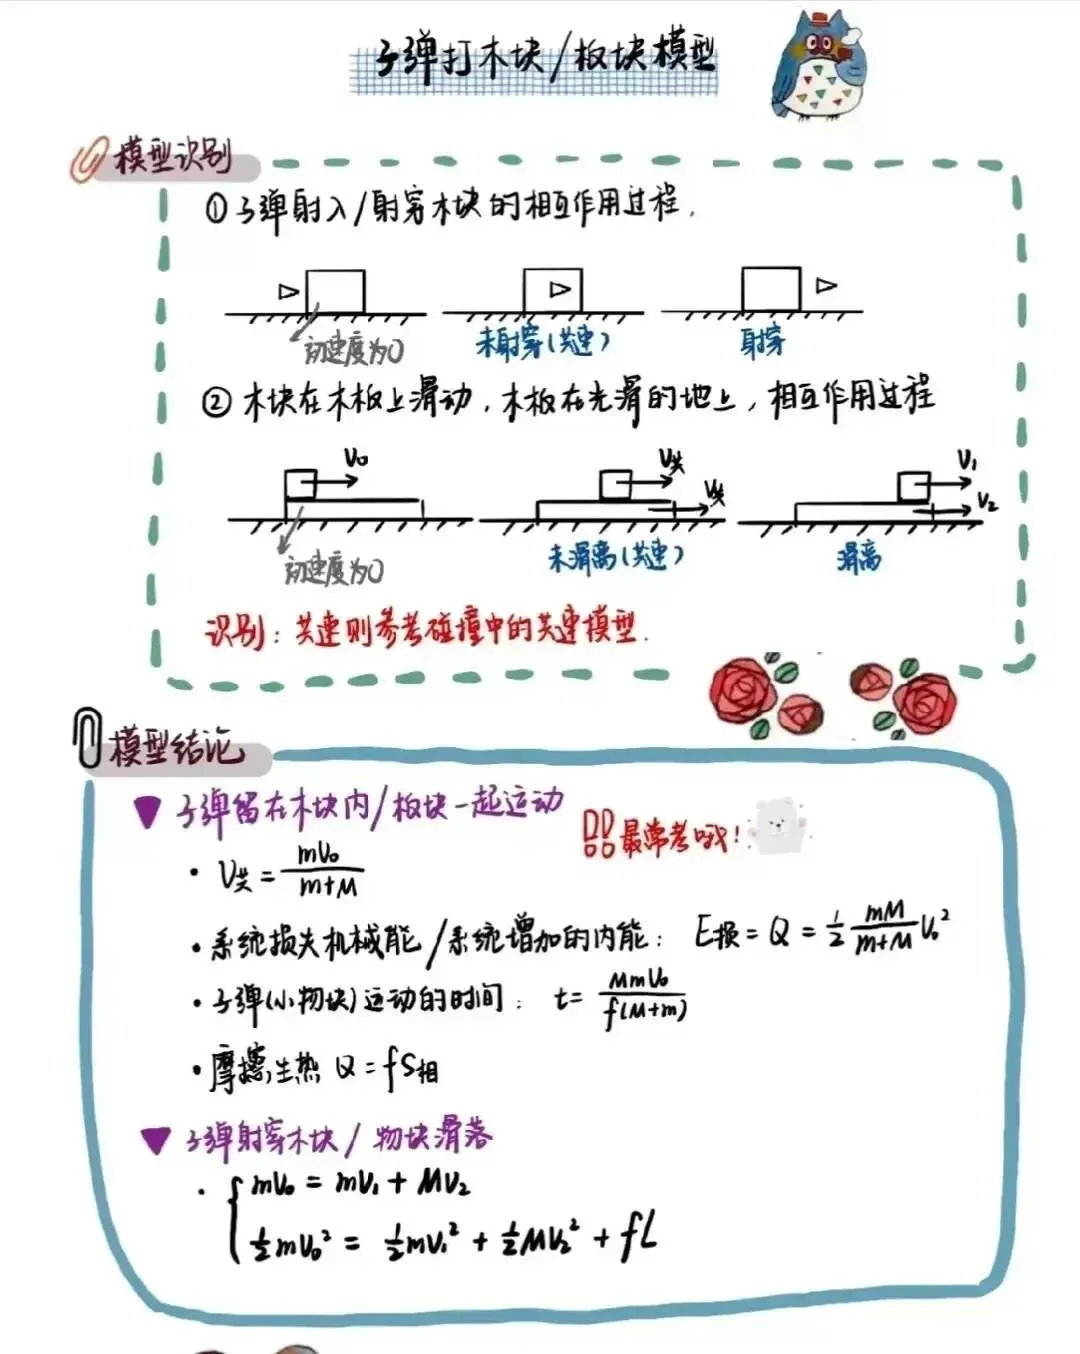 子弹打木块/板块模型
模型识别
①子弹射入/射穿木块的相互作用过程.
初速度为0
未射穿(共速)
射穿
②木块在木板上滑动,木板在光滑的地上,相互作用过程
V₀
V共
V共
V₁
V₂
初速度为0
未滑离(共速)
滑离
识别:共速则参考碰撞中的共速模型.
模型结论
▼子弹留在木块内/板块一起运动
!!最常考哦!
·V共=mV₀/(m+M)
·系统损失机械能/系统增加的内能: E损=Q=½ mM/(m+M) V₀²
·子弹(小物块)运动的时间: t=MmV₀/f(M+m)
·摩擦生热 Q=fS相
▼子弹射穿木块/物块滑落
·{mV₀=mV₁+MV₂
½mV₀²=½mV₁²+½MV₂²+fL